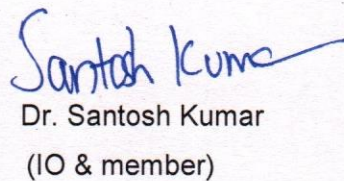 Santosh Kumar
Dr. Santosh Kumar
(IO & member)